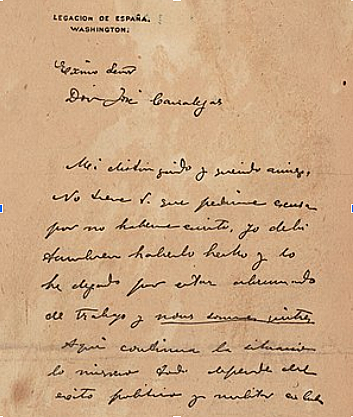 LEGACION DE ESPAÑA.
WASHINGTON.
Exmo Señor
Don José Canalejas
Mi distinguido y querido amigo:
No tiene V. que pedirme excusa
por no haberme escrito, yo debí
tambien haberlo hecho y lo
he dejado por estar abrumado
de trabajo y nous sommes quittes
Aqui continua la situacion
lo mismo todo depende del
exito politico y militar en Cuba